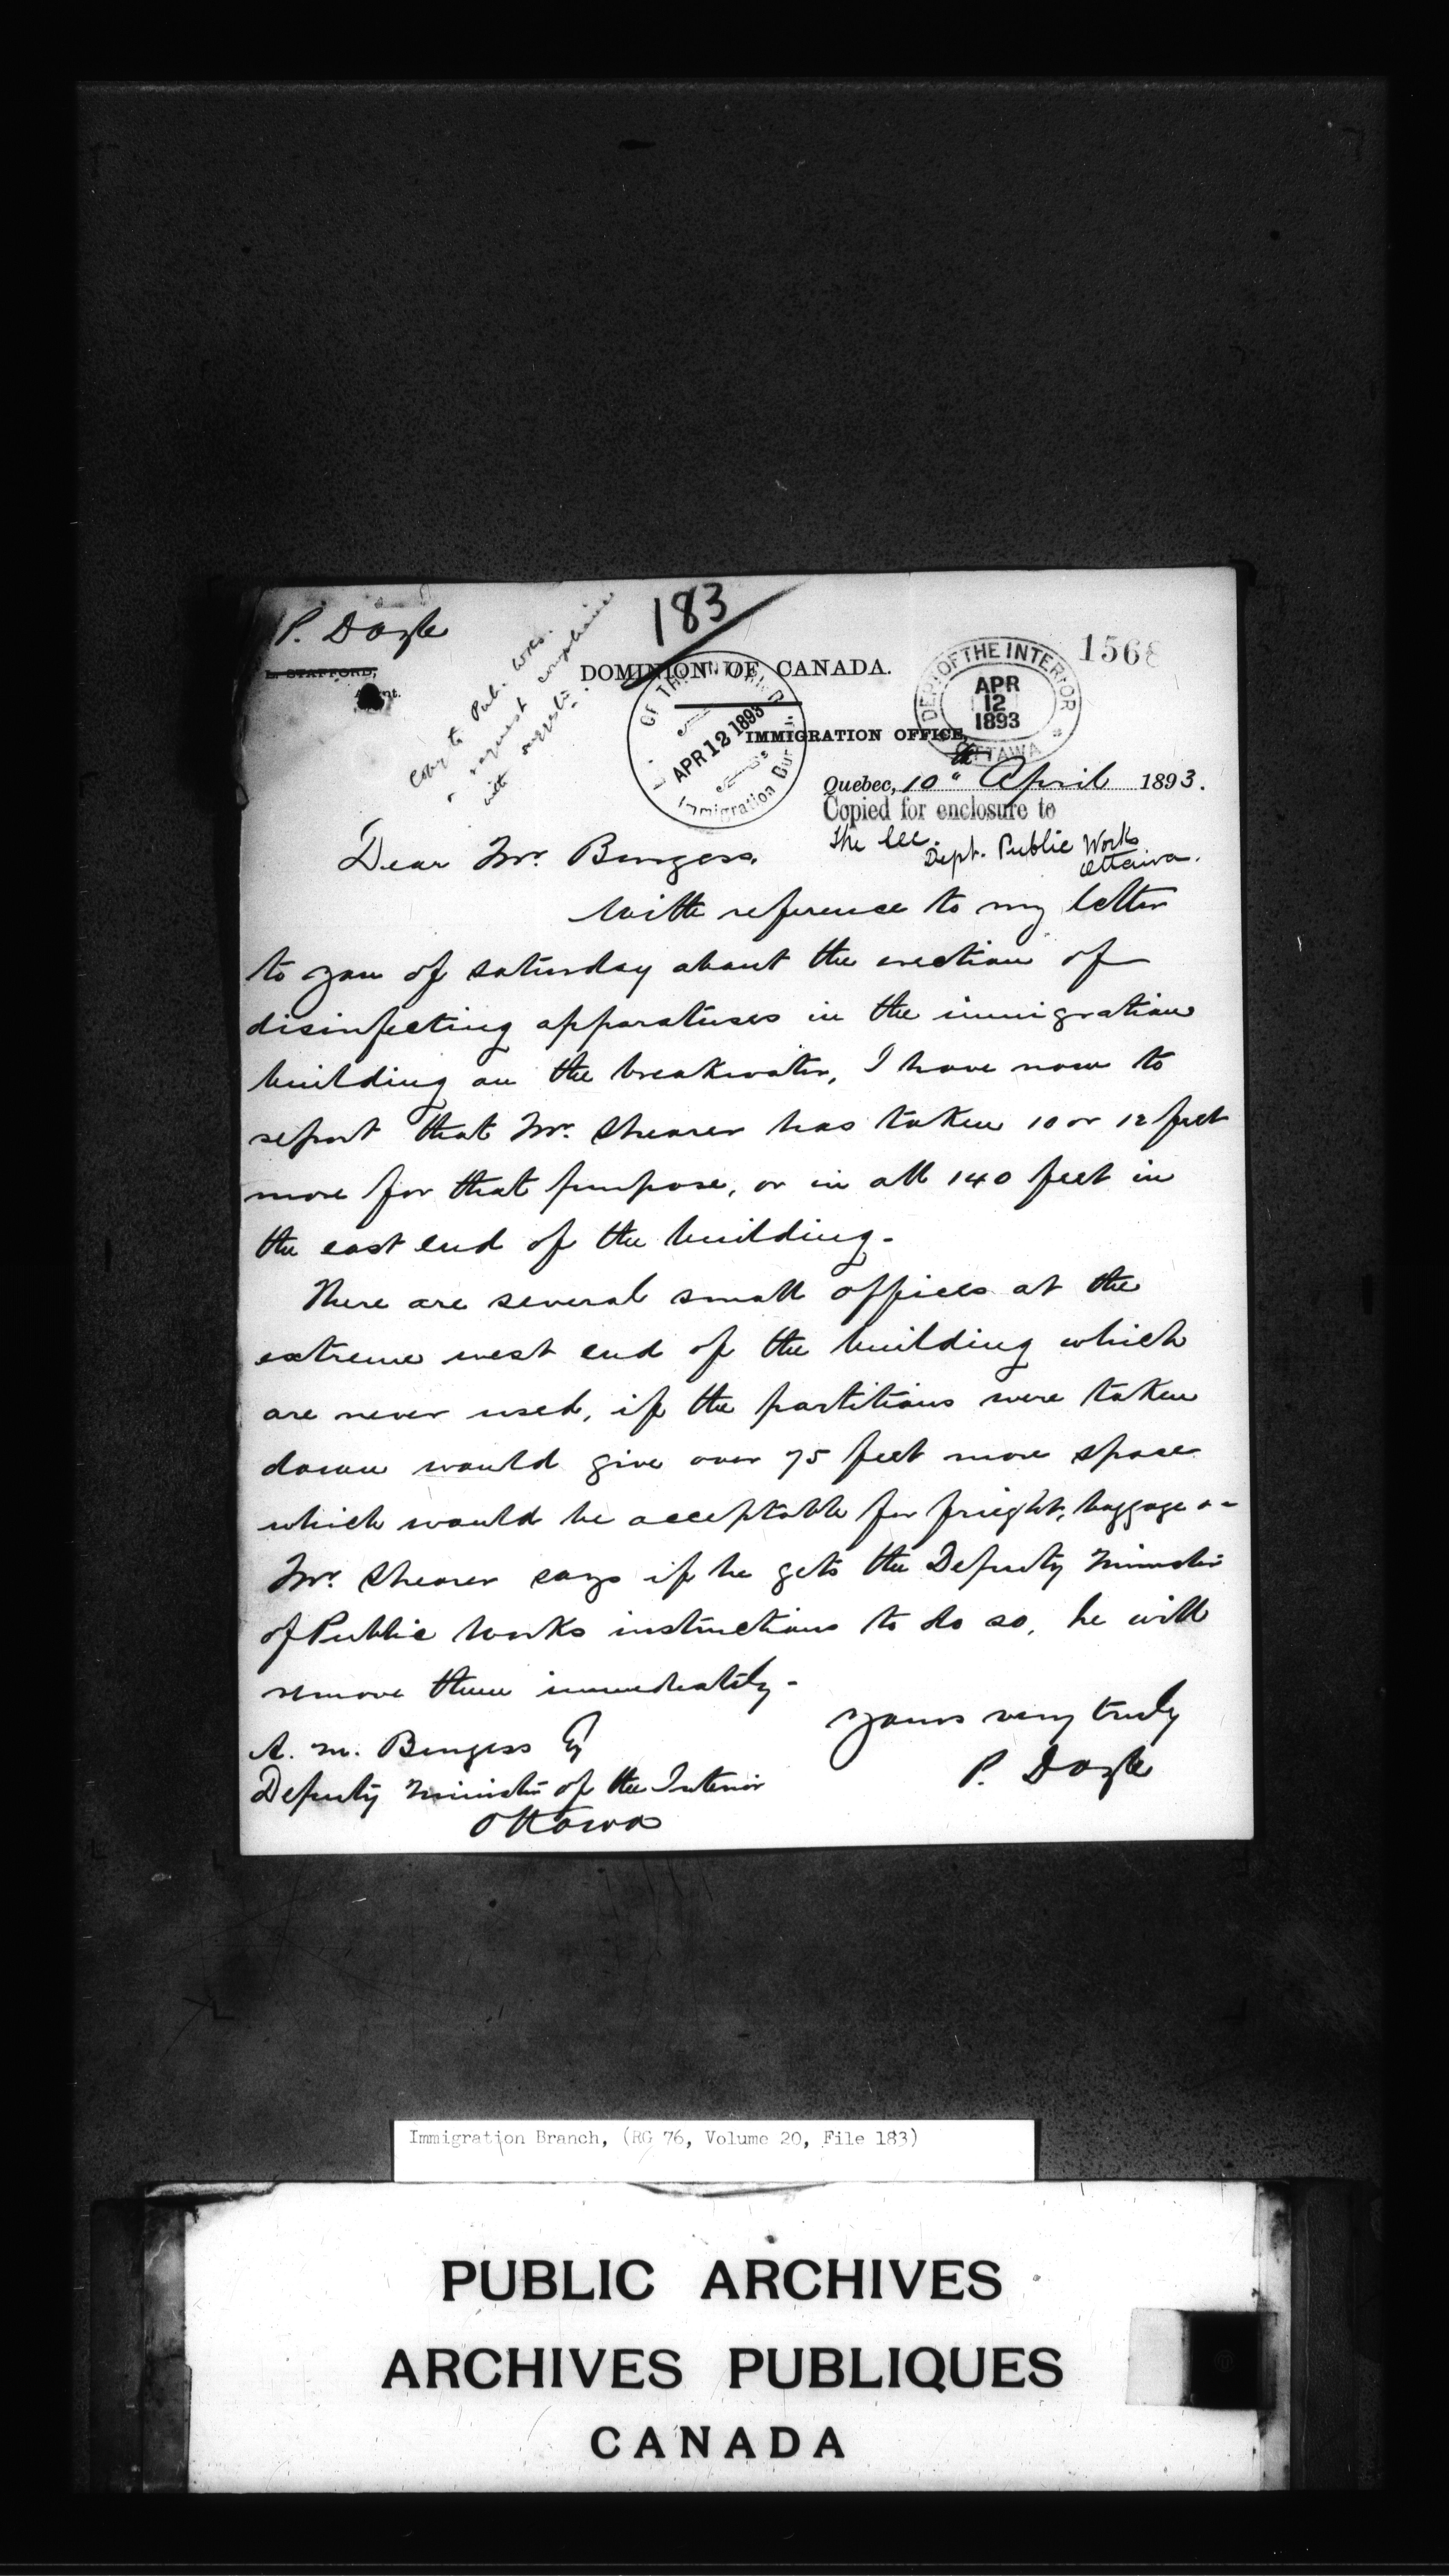 183
P. Doyle
L. STAFFORD,
Agent.
Copy to Pub. Works.
& request compliance
with suggestn.
DOMINION OF CANADA.
OF THE INTERIOR
APR 12 1893
Immigration
DEPT OF THE INTERIOR
APR
12
1893
OTTAWA
1568
IMMIGRATION OFFICE,
Quebec, 10th April 1893.
Copied for enclosure to
the Sec.
Dept. Public Works
Ottawa.
Dear Mr. Burgess,
With reference to my letter
to you of saturday about the erection of
disinfecting apparatuses in the immigration
building on the breakwater, I have now to
report that Mr. Shearer has taken 10 or 12 feet
more for that purpose, or in all 140 feet in
the east end of the building.
There are several small offices at the
extreme west end of the building which
are never used, if the partitions were taken
down would give over 75 feet more space
which would be acceptable for freight, baggage
Mr. Shearer says if he gets the Deputy Minister
of Public Works instructions to do so, he will
remove them immediately -
Yours very truly
P. Doyle
A. M. Burgess Esq
Deputy Minister of the Interior
Ottawa
Immigration Branch, (RG 76, Volume 20, File 183)
PUBLIC ARCHIVES
ARCHIVES PUBLIQUES
CANADA